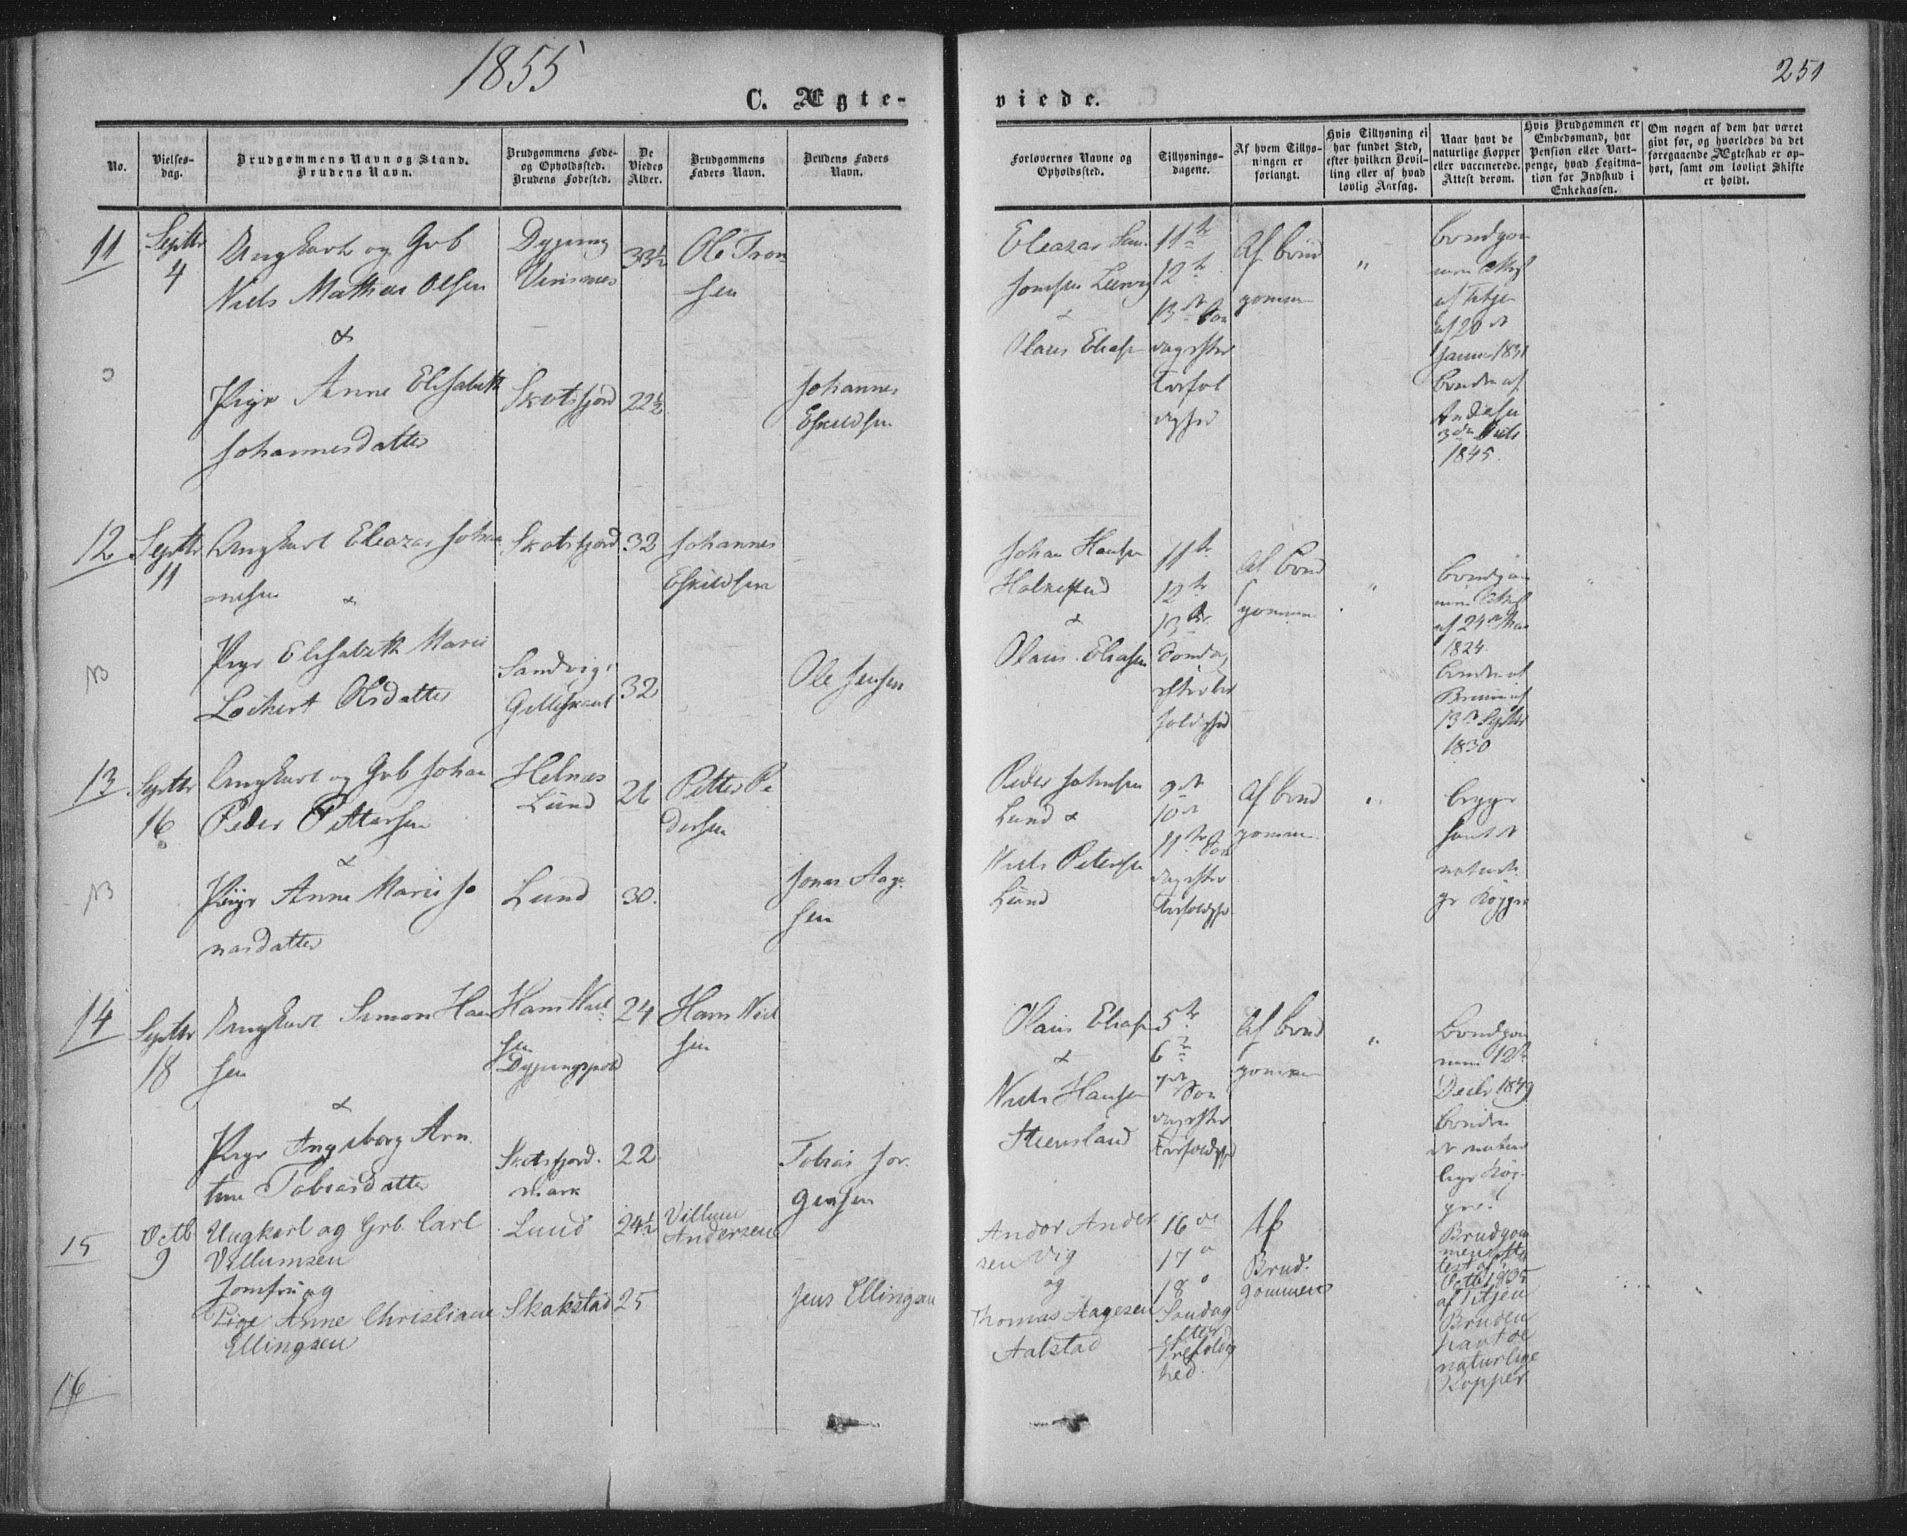 1855
251
C. Ægte-
viede.
No.
Vielses-
dag.
Brudgommens Navn og Stand.
Brudens Navn.
Brudgommens Føde-
og Opholdssted.
Brudens Fødested.
De
Viedes
Alder.
Brudgommens
Faders Navn.
Brudens Faders
Navn.
Forlovernes Navne og
Opholdssted.
Tillysnings-
dagene.
Af hvem Tillys-
ningen er
forlangt.
Hvis Tillysning ei
har fundet Sted,
efter hvilken Bevil-
ling eller af hvad
lovlig Aarsag.
Naar havt de
naturlige Kopper
eller vaccinerede.
Attest derom.
Hvis Brudgommen er
Embedsmand, har
Pension eller Vart-
penge, hvad Legitima-
tion for Indskud i
Enkekassen.
Om nogen af dem har været
givt før, og hvorledes da det
foregaaende Ægteskab er op-
hørt, samt om lovligt Skifte
er holdt.
11
Septbr
4
Ungkarl og Grb
Niels Mathias Olsen
&
Pige Anne Elisabeth
Johannesdatter
Skotsfjord
33½
22½
Ole Tron
sen
Johannes
Eskildsen
Eleazar
&
Olaus Elias
11te
12te
13de Søn
dag efter
Trefol
dighed
Af Brud
gommen
"
Brudgom
men
af
af 20de
Januar 1831
Bruden af
3die
1845.
12
Septbr
11
Ungkarl Eleazar Johan
nesen &
Pige Elisabeth Marie
Lochert Olsdatter
Skotsfjord
Sandvig,
Gilleskaal
32
32
Johannes
Eskildsen
Ole Jensen
Johan Hansen
Holkestad
&
Olaus Eliasen
11te
12te
13de
Søndag
efter Tre
foldighed
Af Brud
gommen
"
Brudgom
men
af 24de
1824
Bruden af
13de Septbr
1830
13
Septbr
16
Ungkarl og Grb Johan
Peder Pettersen
&
Pige Anne Marie Jo
nasdatter
Helnæs
Lund
Lund
26
30.
Petter Pe
dersen
Jonas Aage
sen
Peder Johnsen
Lund &
Niels Petersen
Lund
9de
10de
11te Søn
dag efter
Trefoldighed
Af Brud
gommen
"
begge
havt de
naturli
ge Kopper
14
Septbr
18
Ungkarl Simon Han
sen
&
Pige Ingeborg Arn
tine Tobiasdatter
Hans Niel
sen
Skotsfjord
mark
24
22
Hans Niel
sen
Tobias Jør
gensen
Olaus Elias
&
Niels Hansen
Steensland
5te
6te
7de Søn
dag efter
Trefoldighed
Af Brud
gommen
"
Brudgom
men 12te
Decbr 1849
Bruden
de natur
lige Kop
per.
15
Octb
9
Ungkarl og Grb. Carl
Villumsen
Jomfru og
Pige Anne Christiane
Ellingsen
Lund
Skakstad
24½
25
Villum
Andersen
Jens Ellingsen
Andor Ander
sen Vig
og
Thomas Aagesen
Aalstad
16de
17de
18de
Søndag
efter
Trefoldig
hed.
Af
Brud-
gommen
Brudgom
mens At
test af
Octb 1835
af Titjen
Bruden
havt de
naturlige
Kopper
16